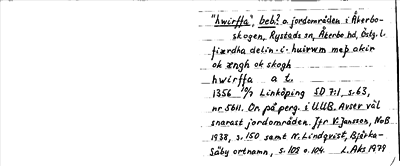 "hwirffa", beb? o. jordområden i Åkerbo-
skogen, Rystads sn, Åkerbo hd, Östg. l.
fiærdha delin · i · huirwm meþ akir
ok ængh ok skogh
hwirffa a t.
1356 10/7 Linköping SD 7:1, s. 63,
nr 5611. Or. på perg. i UUB. Avser väl
snarast jordområden. Jfr V. Jansson, NoB
1938, s. 150 samt N. Lindqvist, Bjärka-
Säby ortnamn, s. 103 o. 104. L. Aks 1979